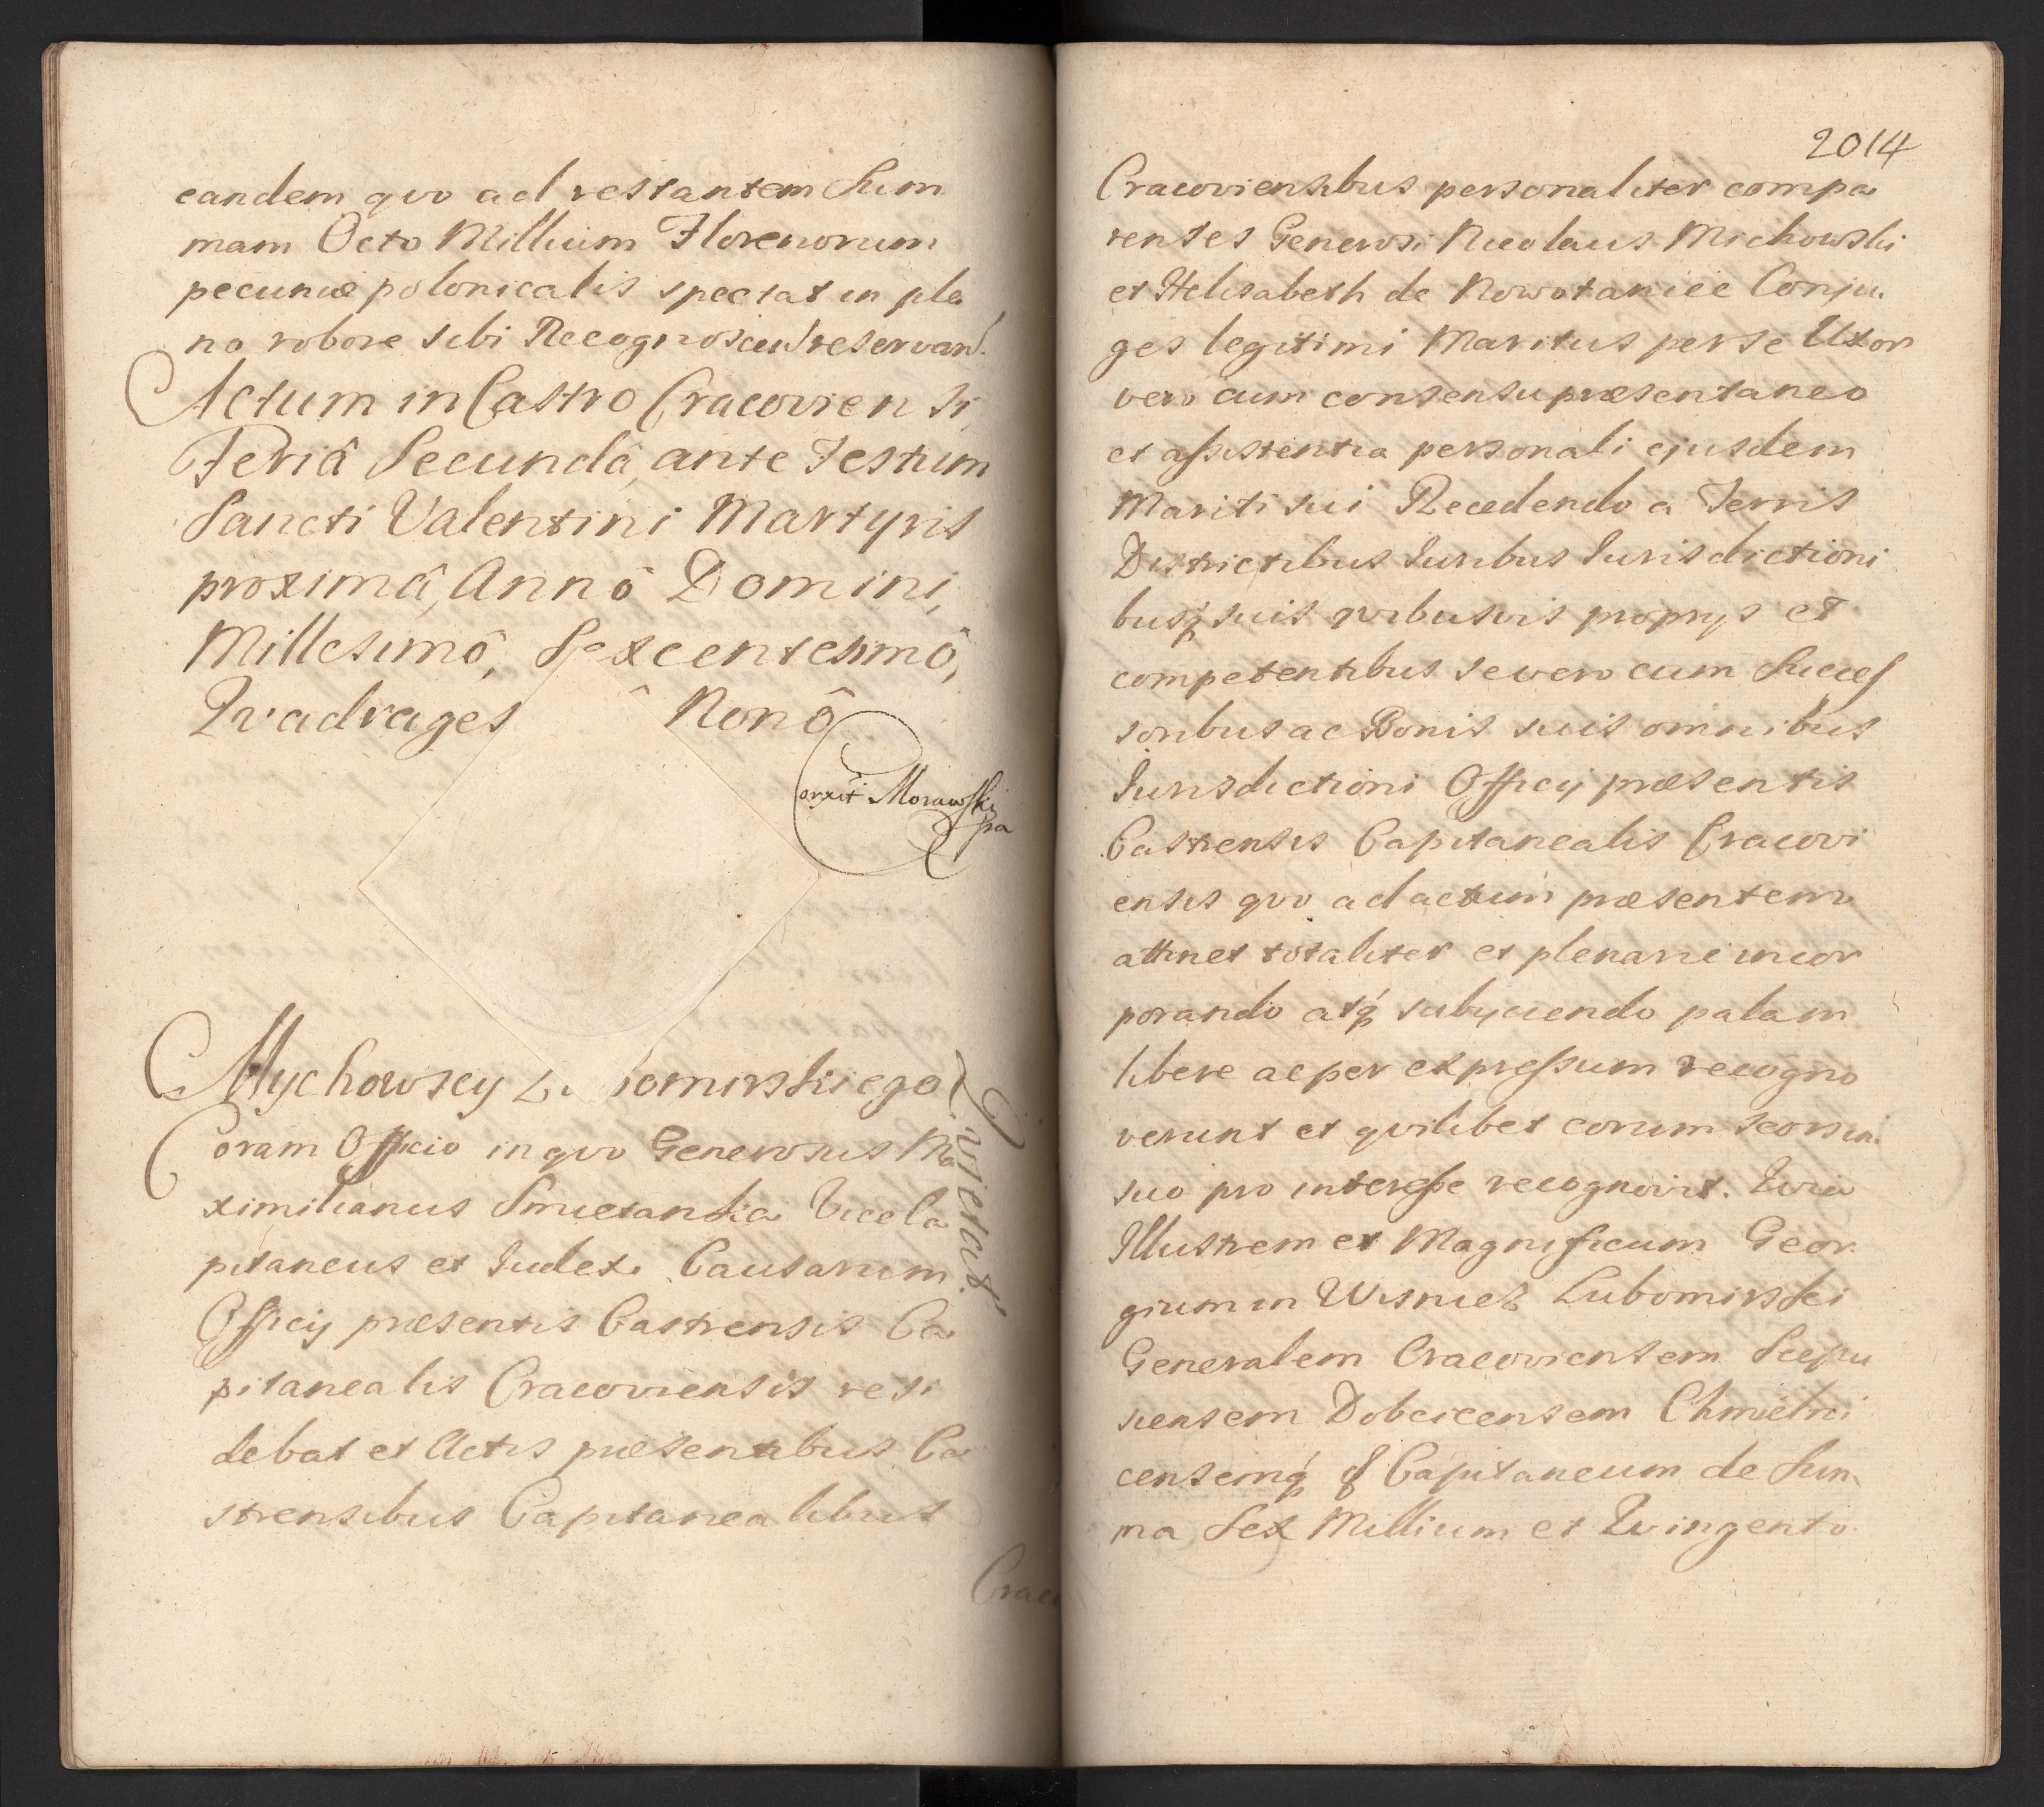 eandem qvo ad restantem Sum
mam Octo Millium Florenorum
pecuniæ polonicalis spectat in ple
no robore sibi Recognoscen reservan
Actum in Castro Cracoviensi,
Feriâ Secundâ, ante Festum
Sancti Valentini Martyris
proximâ, Annô Domini,
Millesimô, Sexcentesimô,
Qvadrages Nonô
Corrxit Morawski
pa
Mychowscy L omirskiego
Qvietat
Coram Officio in qvo Generosus Ma
ximilianus Smietanka Viceca
pitaneus et Iudex Causarum
Officij præsentis Castrensis Ca
pitanealis Cracoviensis resi
debat et Actis præsentibus Ca
strensibus Capitanealibus
Crac
2014
Cracoviensibus personaliter compa
rentes Generosi Nicolaus Michowski
et Helisabeth de Nowotaniec Conju
ges legitimi Maritus per se Uxor
vero cum consensu præsentaneo
et assistentia personali ejusdem
Mariti sui Recedendo a Terris
Districtibus Iuribus Iurisdictioni
busq suis qvibusvis proprys et
competentibus se vero cum Succes
soribus ac Bonis suis omnibus
Iurisdictioni Officij præsentis
Castrensis Capitanealis Cracovi
ensis qvo ad actum præsentem
attinet totaliter et plenarie incor
porando atq subyciendo palam
libere ac per expressum recogno
verunt et qvilibet eorum seorsim
suo pro interesse recognovit. Qvia
Illustrem et Magnificum Geor
gium in Wisnicz Lubomirski
Generalem Cracoviensem Scepu
siensem Dobcicensem Chmielni
censemq Capitaneum de Sum
ma Sex Millium et Qvingento